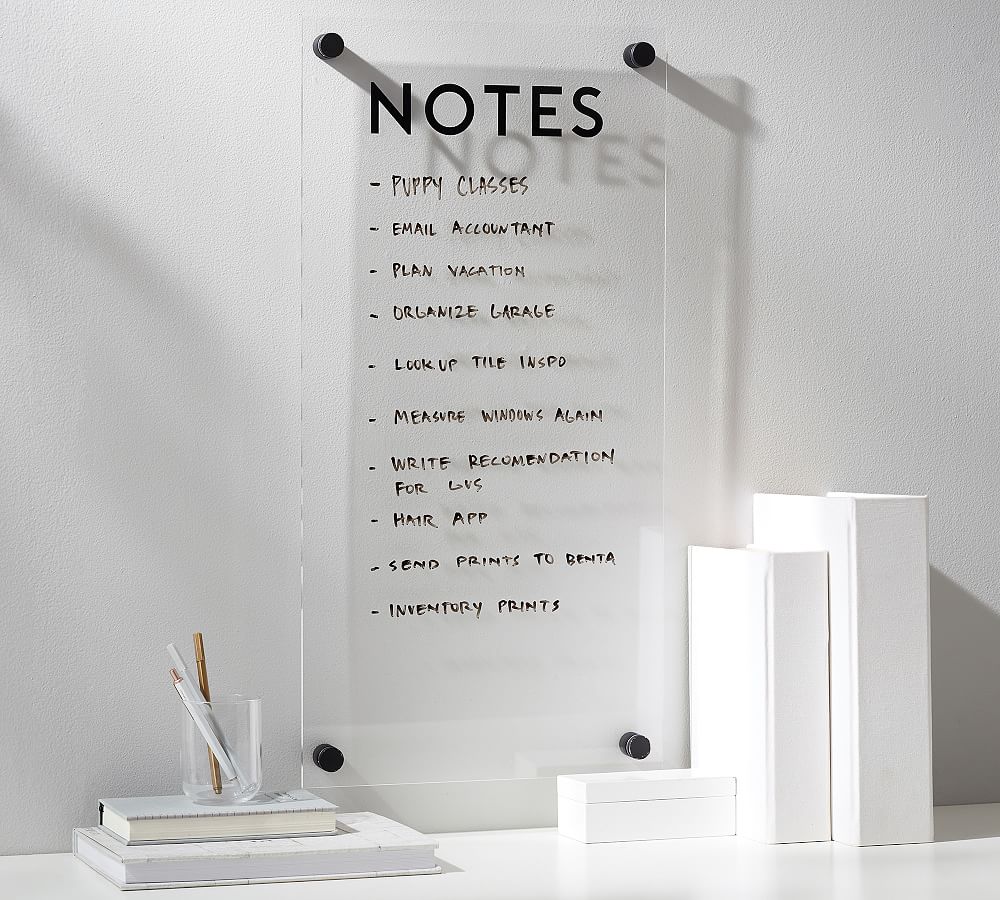 NOTES
- PUPPY CLASSES
- EMAIL ACCOUNTANT
- PLAN VACATION
- ORGANIZE GARAGE
- LOOK UP TILE INSPO
- MEASURE WINDOWS AGAIN
- WRITE RECOMENDATION
FOR
- HAIR APP
- SEND PRINTS TO BENTA
- INVENTORY PRINTS